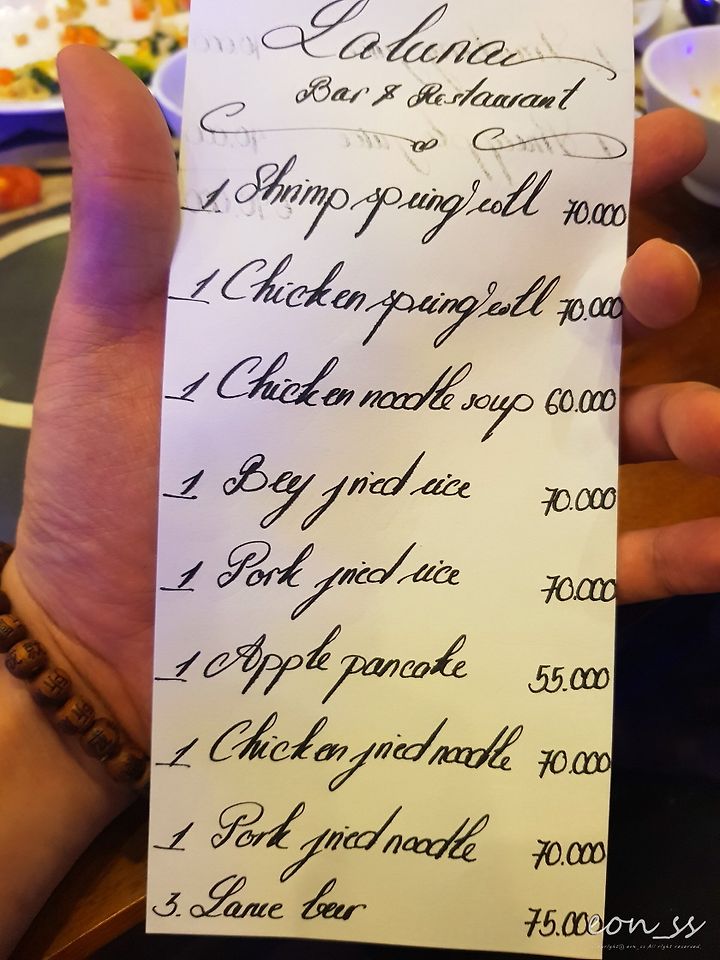 Laluna
Bar & Restaurant
1 Shrimp spring roll 70.000
1 Chicken spring roll 70.000
1 Chicken noodle soup 60.000
1 Beef fried rice 70.000
1 Pork fried rice 70.000
1 Apple pancake 55.000
1 Chicken fried noodle 70.000
1 Pork fried noodle 70.000
3. Larue beer 75.000
eon_ss